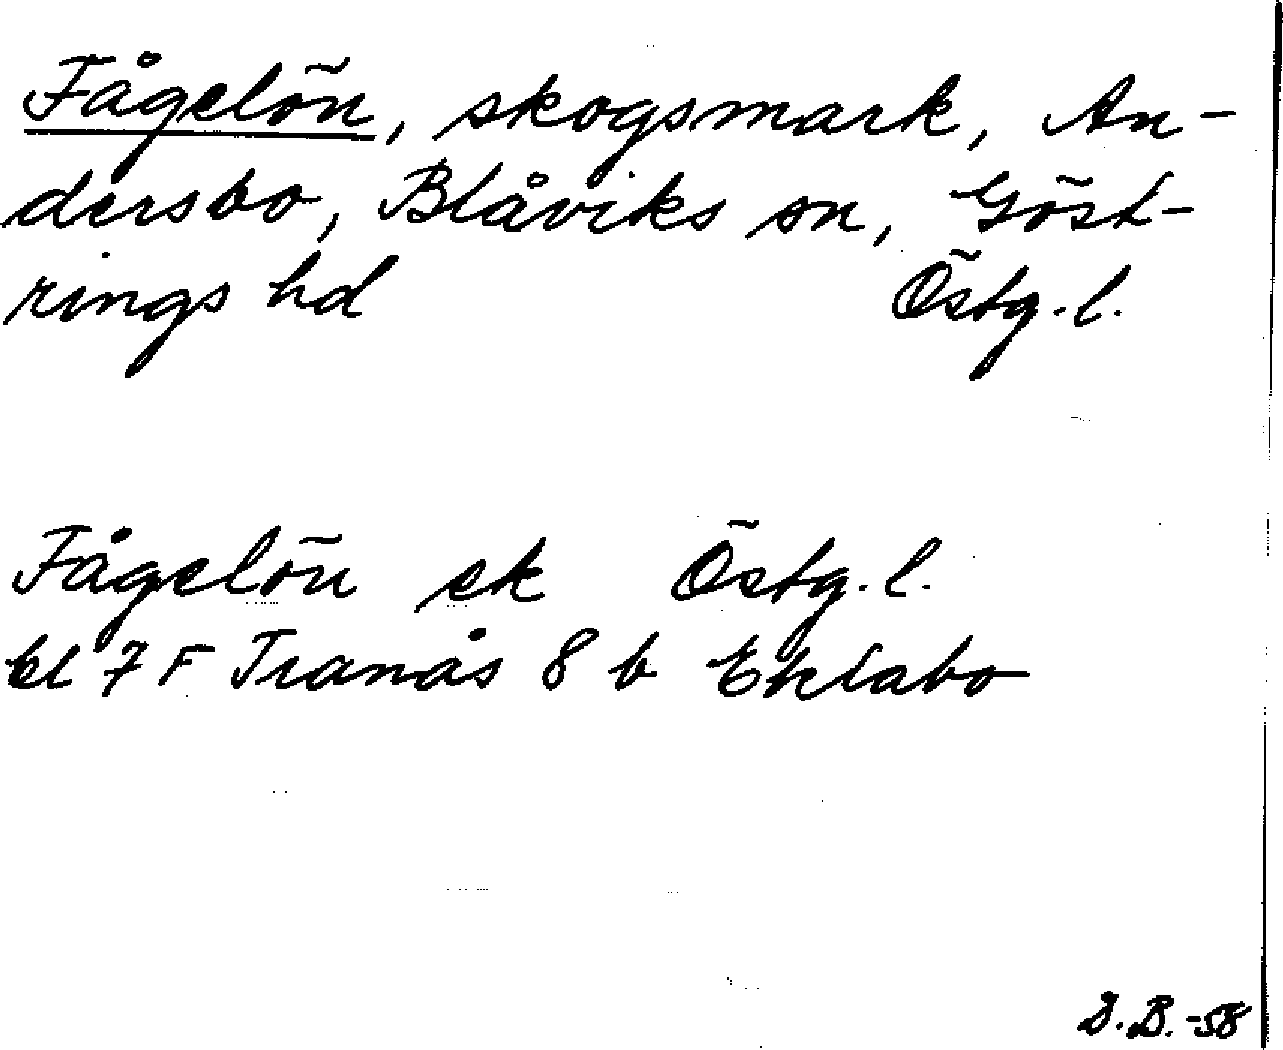 Fågelön, skogsmark, An-
dersbo, Blåviks sn, Göst-
rings hd Östg. l.
Fågelön ek Östg. l.
bl 7 F Tranås 8 b Eklabo
D.B.-58